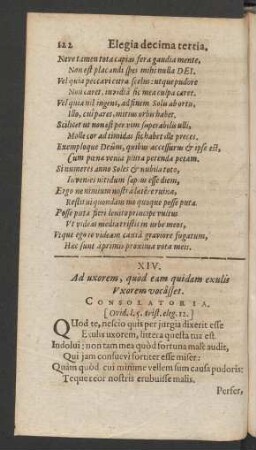 122 Elegia decima tertia,
Neve tamen tota capias fera gaudia mente,
Non est placandi spes mihi nulla DEI.
Vel quia peccavi citra scelus: utque pudore
Non caret, invidiâ sic mea culpa caret.
Vel quia nil ingens, ad finem Solis ab ortu,
Illo, cui paret, mitius orbis habet.
Scilicet ut non est per vim superabilis ulli,
Molle cor ad timidas sic habet ille preces.
Exemploque Deûm, quibus accessurus & ipse est,
Cum pœnæ venia plura petenda petam.
Si numeres anno Soles & nubila toto,
Invenies nitidum sæpius esse diem,
Ergo ne nimium nostrâ lætere ruinâ,
Restitui quondam me quoque posse puta.
Posse puta fieri lenito principe vultus
Ut videas mediâ tristis in urbe meos,
Utque ego te videam causâ graviore fugatum,
Hæc sunt à primis proxima vota meis.
XIV.
Ad uxorem, quod eam quidam exulis
Vxorem vocâsset.
CONSOLATORIA.
[Ovid. l. 5. trist. eleg. 11.]
QUod te, nescio quis per jurgia dixerit esse
Exulis uxorem, littera questa tua est.
Indolui: non tam mea quòd fortuna malè audit,
Qui jam consuevi fortiter esse miser:
Quàm quòd cui minimè vellem sum causa pudoris:
Teque reor nostris erubuisse malis.
Perfer,